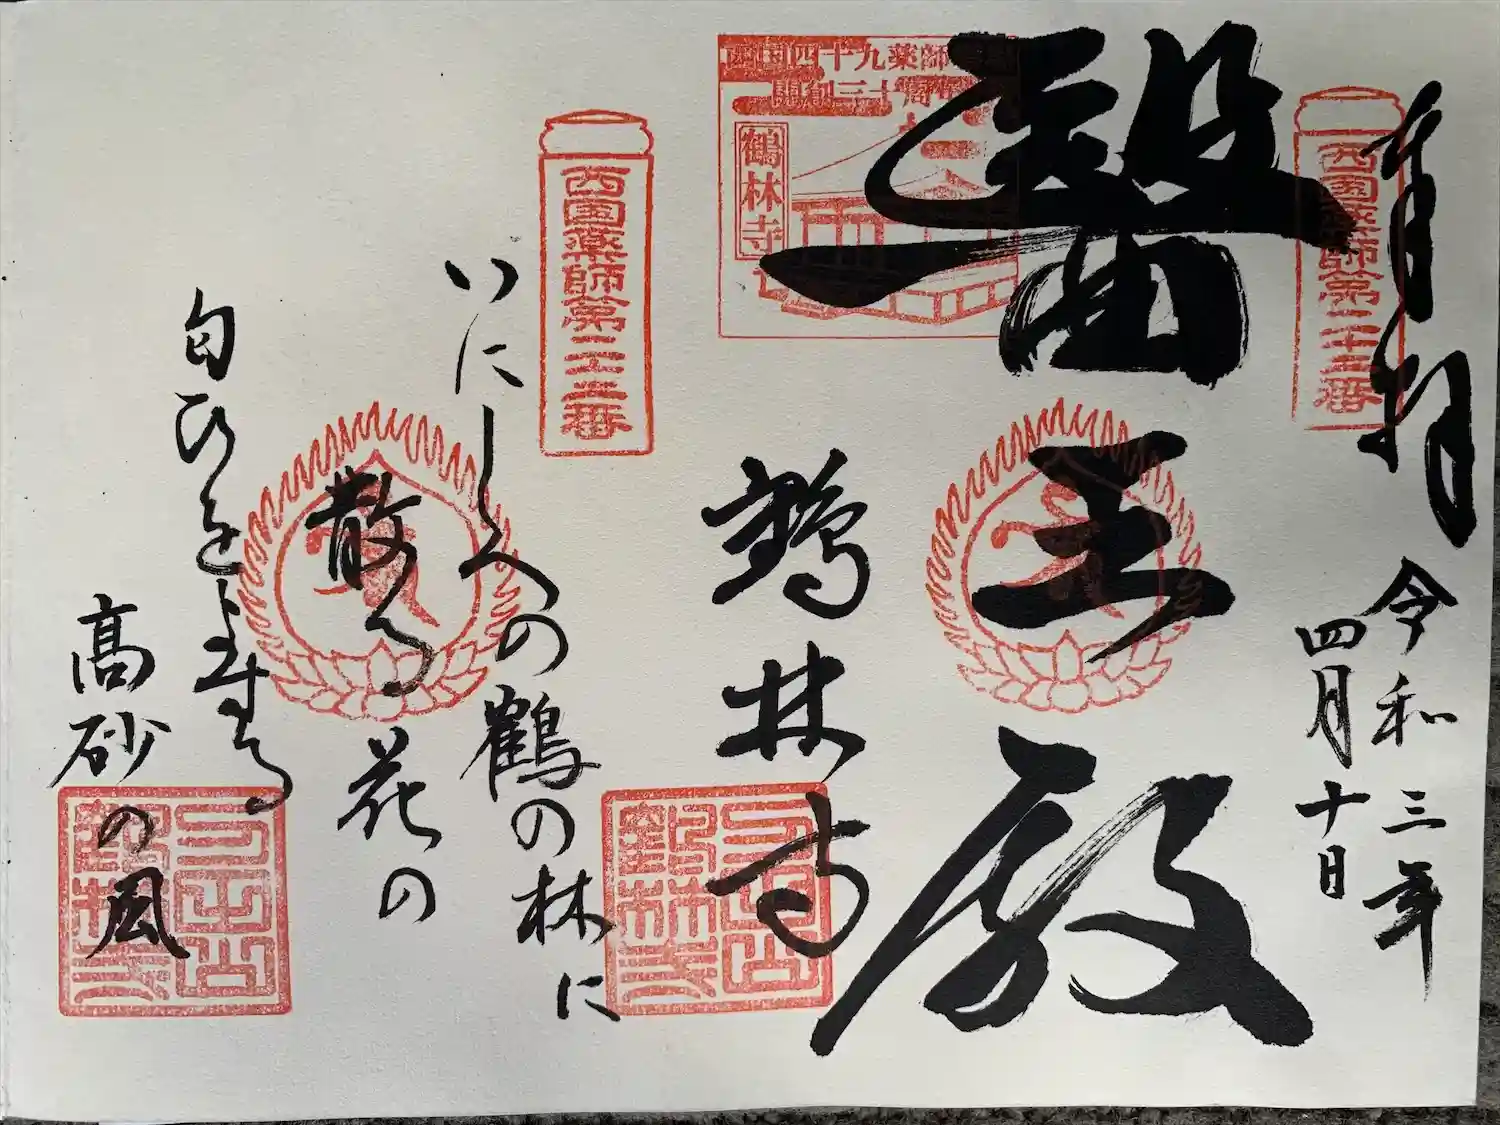 奉拝
令和三年
四月十日
西国薬師第二十二番
醫王殿
西国四十九薬師霊場
開創三十周年
鶴林寺
鶴林寺
西国薬師第二十二番
いにしへの鶴の林に
散る花の
匂ひをよする
高砂の風